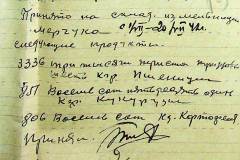 Принято на склад из мельницы
Мерчука с 1/VII-20/VII 42 г.
следующие продукты.
3336 три тысячи триста тридцать
шесть кгр. Пшеницы
851 Восемьсот пятьдесят один
кгр. Кукурузы
806 Восемьсот шесть кг. Картофеля
Принял